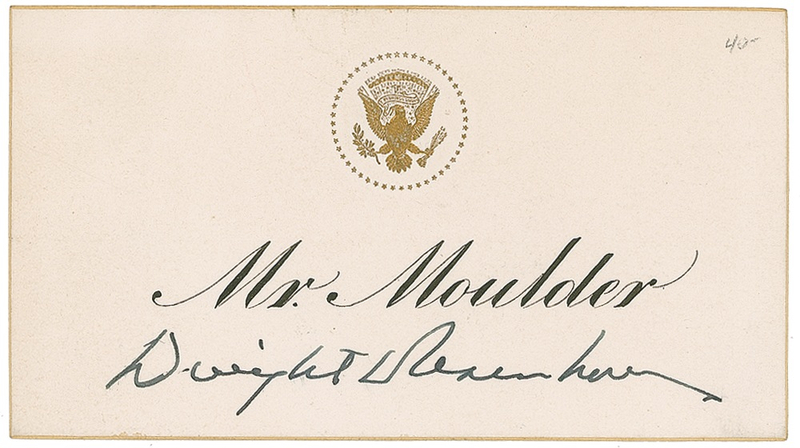 40-
Mr. Moulder
Dwight D Eisenhower